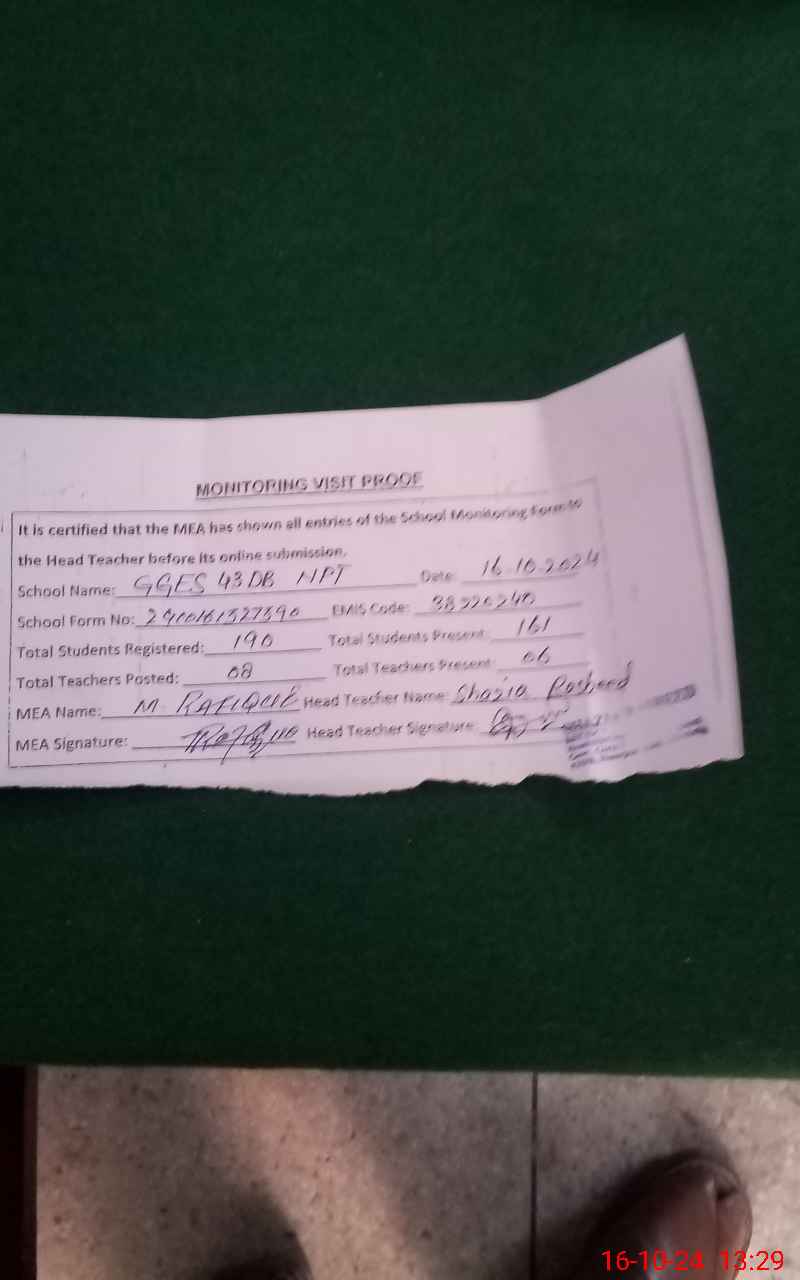 MONITORING VISIT PROOF
It is certified that the MEA has shown all entries of the School Monitoring Form to
the Head Teacher before its online submission.
School Name: GGES 43 DB NPT Date: 16-10-2024
School Form No: EMIS Code:
Total Students Registered: 190 Total Students Present: 161
Total Teachers Posted: 08 Total Teachers Present: 06
MEA Name: M. RAFIQUE Head Teacher Name: Shazia Rasheed
MEA Signature: Head Teacher Signature:
16-10-24 13:29